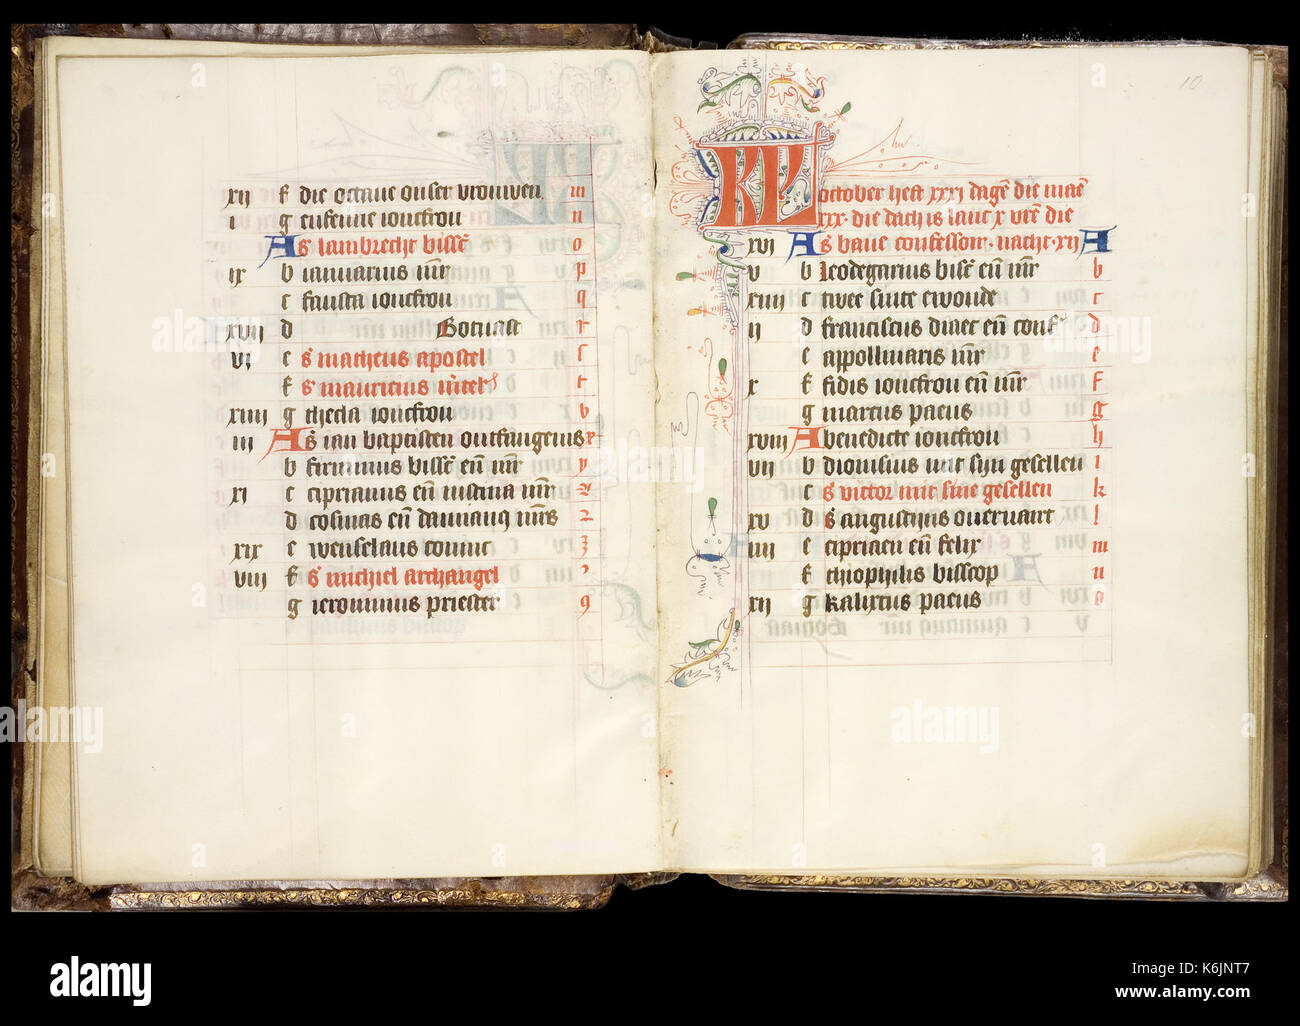 10
xii f die octaue onser vrouwen m
i g eufemie ioncfrou n
A s̄ lambrecht bissc̄ o
ix b ianuarius mr̄ p
c fausta ioncfrou q
xvii d Gotnast r
vi e s̄ matheus apostel s
f s̄ mauricius t
xiiii g thecla ioncfrou v
iii A s̄ ian baptisten ontfangenis x
b firminus bissc̄ en̄ mr̄ y
xi c ciprianus en̄ iustina mr̄ z
d cosmas en̄ damianꝰ mr̄s 2
xix e wenselaus comit 3
viii f s̄ michiel archangel ꝰ
g ieronimus priester 9
KL october heft xxxi dagē die maē
xxx. die dach is lanc x vrē die
xvi A s̄ baue confessoir. nacht. xii A
v b leodegarius bissc̄ en̄ mr̄ b
xiii c twee sinte ewoude c
ii d franciscus diaec en̄ conf̄ d
e appollinaris mr̄ e
x f fidis ioncfrou en̄ mr̄ f
g marcus paeus g
xviii A benedicte ioncfrou h
vii b dionisius mit sijn gesellen i
c s̄ victor mit sine gesellen k
xv d s̄ augustijns overuart l
iiii e cipriaen en̄ felix m
f theophilis bisscop n
xii g kalixtus paeus o
alamy
a
alamy
Image ID: K6JNT7
www.alamy.com